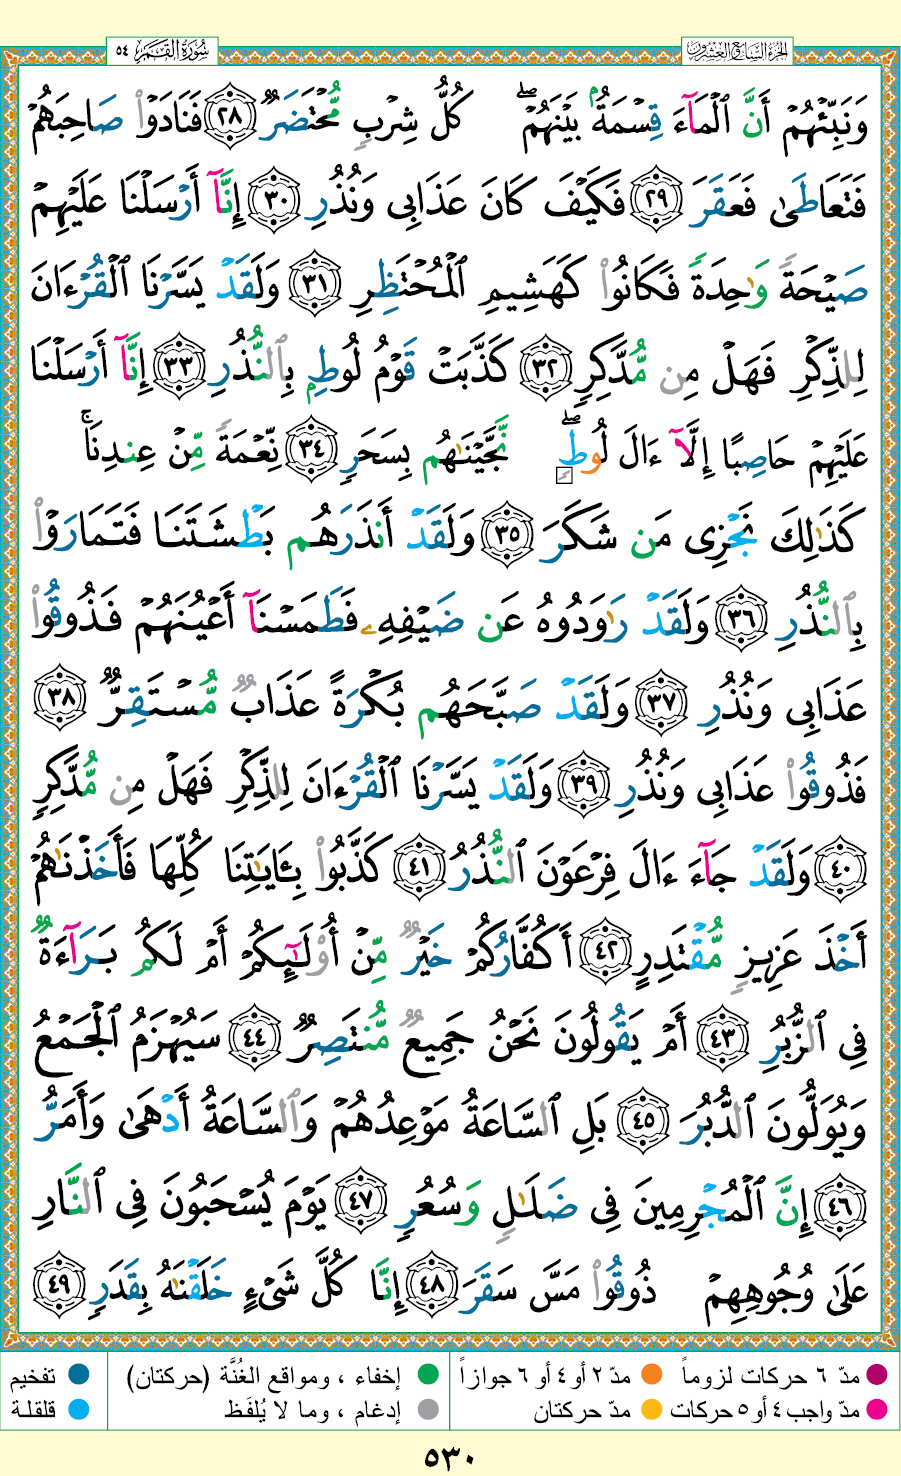 سُورَةُ القَمَرِ ٥٤
الجزء السابع والعشرون
وَنَبِّئْهُمْ أَنَّ ٱلْمَآءَ قِسْمَةٌۢ بَيْنَهُمْۖ كُلُّ شِرْبٍۢ مُّحْتَضَرٌۭ ٢٨ فَنَادَوْا۟ صَاحِبَهُمْ
فَتَعَاطَىٰ فَعَقَرَ ٢٩ فَكَيْفَ كَانَ عَذَابِى وَنُذُرِ ٣٠ إِنَّآ أَرْسَلْنَا عَلَيْهِمْ
صَيْحَةًۭ وَٰحِدَةًۭ فَكَانُوا۟ كَهَشِيمِ ٱلْمُحْتَظِرِ ٣١ وَلَقَدْ يَسَّرْنَا ٱلْقُرْءَانَ
لِلذِّكْرِ فَهَلْ مِن مُّدَّكِرٍۢ ٣٢ كَذَّبَتْ قَوْمُ لُوطٍۭ بِٱلنُّذُرِ ٣٣ إِنَّآ أَرْسَلْنَا
عَلَيْهِمْ حَاصِبًا إِلَّآ ءَالَ لُوطٍۢۖ نَّجَّيْنَٰهُم بِسَحَرٍۢ ٣٤ نِّعْمَةًۭ مِّنْ عِندِنَاۚ
كَذَٰلِكَ نَجْزِى مَن شَكَرَ ٣٥ وَلَقَدْ أَنذَرَهُم بَطْشَتَنَا فَتَمَارَوْا۟
بِٱلنُّذُرِ ٣٦ وَلَقَدْ رَٰوَدُوهُ عَن ضَيْفِهِۦ فَطَمَسْنَآ أَعْيُنَهُمْ فَذُوقُوا۟
عَذَابِى وَنُذُرِ ٣٧ وَلَقَدْ صَبَّحَهُم بُكْرَةً عَذَابٌۭ مُّسْتَقِرٌّۭ ٣٨
فَذُوقُوا۟ عَذَابِى وَنُذُرِ ٣٩ وَلَقَدْ يَسَّرْنَا ٱلْقُرْءَانَ لِلذِّكْرِ فَهَلْ مِن مُّدَّكِرٍۢ
٤٠ وَلَقَدْ جَآءَ ءَالَ فِرْعَوْنَ ٱلنُّذُرُ ٤١ كَذَّبُوا۟ بِـَٔايَٰتِنَا كُلِّهَا فَأَخَذْنَٰهُمْ
أَخْذَ عَزِيزٍۢ مُّقْتَدِرٍ ٤٢ أَكُفَّارُكُمْ خَيْرٌۭ مِّنْ أُو۟لَٰٓئِكُمْ أَمْ لَكُم بَرَآءَةٌۭ
فِى ٱلزُّبُرِ ٤٣ أَمْ يَقُولُونَ نَحْنُ جَمِيعٌۭ مُّنتَصِرٌۭ ٤٤ سَيُهْزَمُ ٱلْجَمْعُ
وَيُوَلُّونَ ٱلدُّبُرَ ٤٥ بَلِ ٱلسَّاعَةُ مَوْعِدُهُمْ وَٱلسَّاعَةُ أَدْهَىٰ وَأَمَرُّ
٤٦ إِنَّ ٱلْمُجْرِمِينَ فِى ضَلَٰلٍۢ وَسُعُرٍۢ ٤٧ يَوْمَ يُسْحَبُونَ فِى ٱلنَّارِ
عَلَىٰ وُجُوهِهِمْ ذُوقُوا۟ مَسَّ سَقَرَ ٤٨ إِنَّا كُلَّ شَىْءٍ خَلَقْنَٰهُ بِقَدَرٍۢ ٤٩
مدّ ٦ حركات لزوماً مدّ ٢ أو ٤ أو ٦ جوازاً إخفاء ، ومواقع الغُنَّة (حركتان) تفخيم
مدّ واجب ٤ أو ٥ حركات مدّ حركتان إدغام ، وما لا يُلفَظ قلقلة
٥٣٠